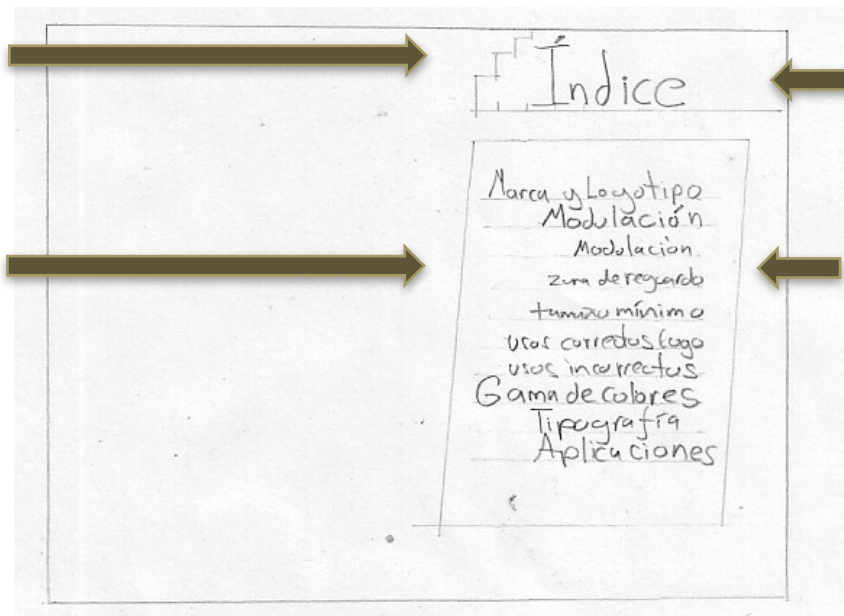 Índice
Marca y Logotipo
Modulación
Modulación
zona de reguardo
tamaño mínimo
usos correctos logo
usos incorrectos
Gama de colores
Tipografía
Aplicaciones